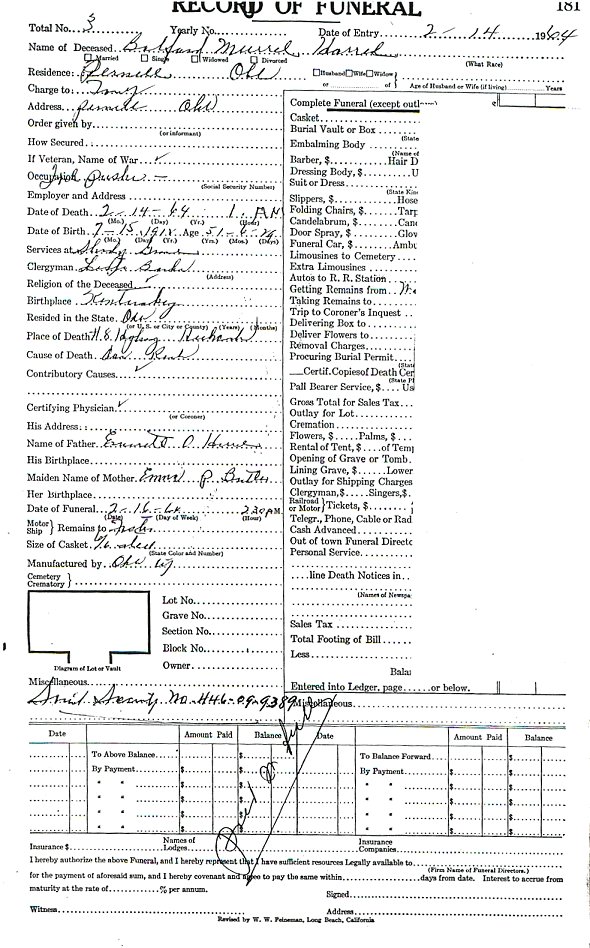 RECORD OF FUNERAL 181
Total No. 3 Yearly No. Date of Entry 2-14 1964
Name of Deceased Murrel Harrel
Married Single Widowed Divorced (What Race)
Residence: Okl Husband Wife Widow or of Age of Husband or Wife (if living) Years
Charge to:
Address Okl
Order given by
(or informant)
How Secured
If Veteran, Name of War ✓
Occupation
(Social Security Number)
Employer and Address
Date of Death 2-14-64 1 AM
(Mo.) (Day) (Yr.) (Hour)
Date of Birth 7-15 Age 51
(Mo.) (Day) (Yr.) (Yrs.) (Mos.) (Days)
Services at
Clergyman
(Address)
Religion of the Deceased ✓
Birthplace Kentuckey
Resided in the State
(or U. S. or City or County) (Years) (Months)
Place of Death
Cause of Death
Contributory Causes ✓
Certifying Physician ✓
(or Coroner)
His Address
Name of Father Emmett O
His Birthplace
Maiden Name of Mother P.
Her Birthplace
Date of Funeral 2-16-64 2 30 PM
(Date) (Day of Week) (Hour)
Motor Ship } Remains to
Size of Casket
(State Color and Number)
Manufactured by Okl
Cemetery Crematory }
Lot No.
Grave No.
Section No.
Block No.
Owner
Diagram of Lot or Vault
Miscellaneous
No. 446-09-9389
Complete Funeral (except outl
Casket
Burial Vault or Box
(State
Embalming Body
(Name of
Barber, $ Hair D
Dressing Body, $ U
Suit or Dress
(State Kind
Slippers, $ Hose
Folding Chairs, $ Tarp
Candelabrum, $ Cand
Door Spray, $ Glov
Funeral Car, $ Ambu
Limousines to Cemetery
Extra Limousines
Autos to R. R. Station
Getting Remains from
Taking Remains to
Trip to Coroner's Inquest
Delivering Box to
Deliver Flowers to
Removal Charges
Procuring Burial Permit
(State
Certif. Copies of Death Cer
(State Pl
Pall Bearer Service, $ Us
Gross Total for Sales Tax
Outlay for Lot
Cremation
Flowers, $ Palms, $
Rental of Tent, $ of Temp
Opening of Grave or Tomb
Lining Grave, $ Lower
Outlay for Shipping Charges
Clergyman, $ Singers, $
Railroad or Motor } Tickets, $
Telegr., Phone, Cable or Rad
Cash Advanced
Out of town Funeral Directo
Personal Service
line Death Notices in
(Names of Newspa
Sales Tax
Total Footing of Bill
Less
Balan
Entered into Ledger, page or below.
Miscellaneous
Date Amount Paid Balance Date Amount Paid Balance
To Above Balance $ To Balance Forward $
By Payment $ $ By Payment $ $
" " $ $ " " $ $
" " $ $ " " $ $
" " $ $ " " $ $
" " $ $ " " $ $
Insurance $ Names of Lodges Insurance Companies
I hereby authorize the above Funeral, and I hereby represent that I have sufficient resources Legally available to
(Firm Name of Funeral Directors.)
for the payment of aforesaid sum, and I hereby covenant and agree to pay the same within days from date. Interest to accrue from
maturity at the rate of % per annum.
Signed
Witness Address
Revised by W. W. Feineman, Long Beach, California